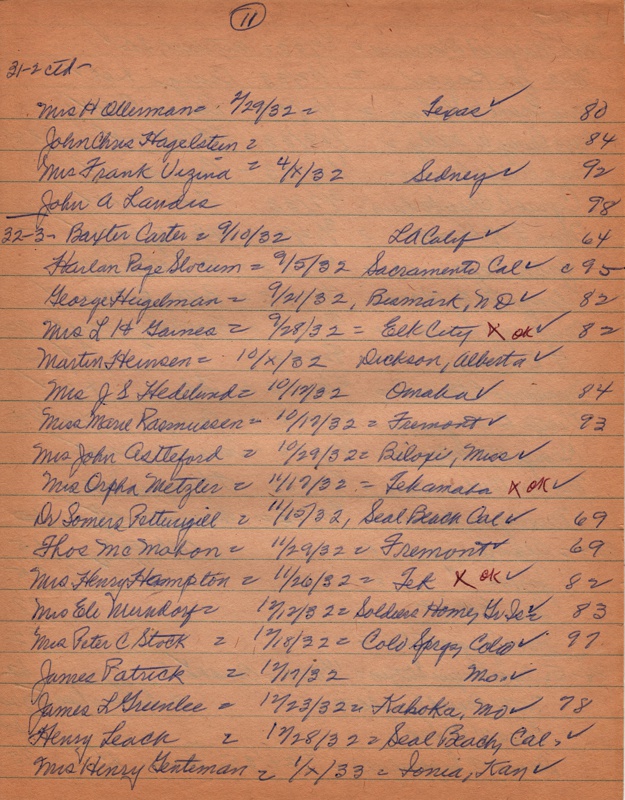 11
31-2 ctd-
Mrs H Ollerman = 2/29/32 = Texas ✓ 80
John Chris Hagelstein = 84
Mrs Frank Vizina = 4/X/32 Sidney ✓ 92
John A Landis 98
32-3- Baxter Carter = 9/10/32 LA Calif ✓ 64
Harlan Page Slocum = 9/5/32 Sacramento Cal ✓ c 95
George Hugelman = 9/21/32, Bismark, ND ✓ 82
Mrs L H Gaines = 9/28/32 = Elk City X OK ✓ 82
Martin Heinsen = 10/X/32 Dickson, Alberta ✓
Mrs J S Hedelund = 10/12/32 Omaha ✓ 84
Miss Marie Rasmussen = 10/17/32 = Fremont ✓ 93
Mrs John Astleford = 10/29/32 = Biloxi, Miss ✓
Mrs Orpha Metzler = 11/17/32 = Tekamaha X OK ✓
Dr Somers Pettengill = 11/15/32, Seal Beach Cal ✓ 69
Thos McMahon = 11/29/32 = Fremont ✓ 69
Mrs Henry Hampton = 11/26/32 = Tek X OK ✓ 82
Mrs Eli = 12/12/32 = Soldiers Home, Gr Is ✓ 83
Mrs Peter C Stock = 12/18/32 = Colo Spgs, Colo ✓ 97
James Patrick = 12/17/32 Mo. ✓
James L Greenlee = 12/23/32 = Kahoka, Mo ✓ 78
Henry Leach = 12/28/32 = Seal Beach, Cal. ✓
Mrs Henry Genteman = 1/X/33 = Ionia, Kan ✓